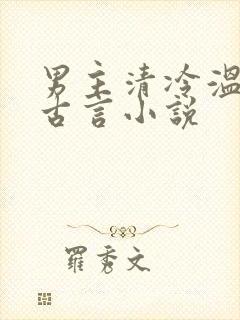 男主清冷温
古言小説
羅秀文